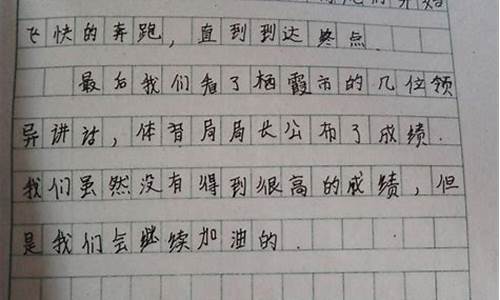 飞快的奔跑，直到到达终点.
最后我们看了栖霞市的几位领
导讲话，体育局局长公布了成绩.
我们虽然没有得到很高的成绩，但
是我们会继续加油的.